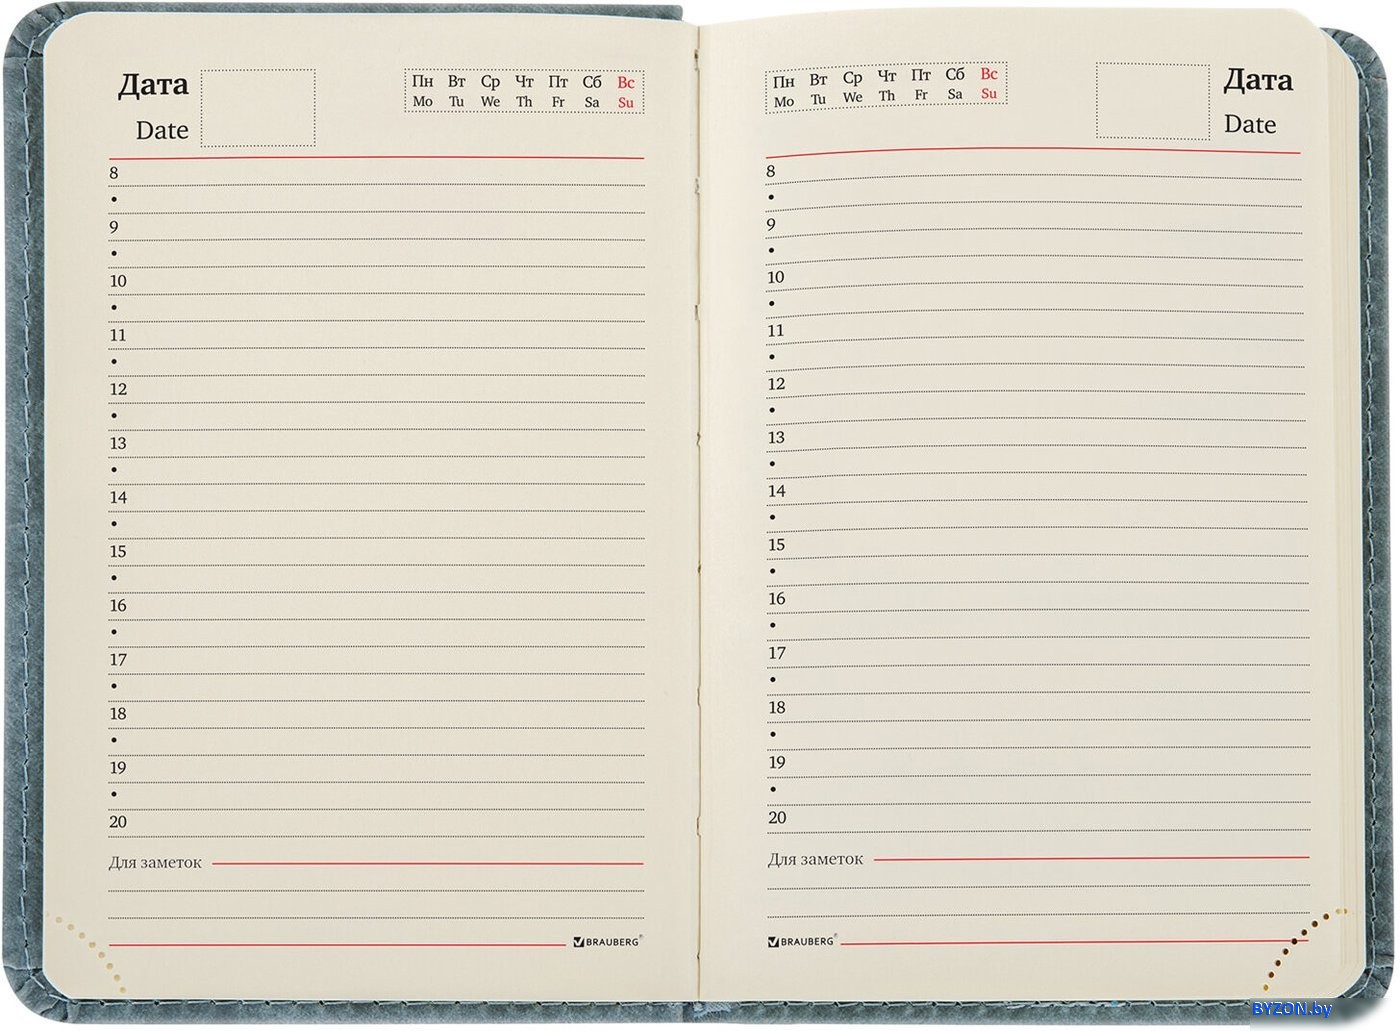 Дата
Date
Пн Вт Ср Чт Пт Сб Вс
Mo Tu We Th Fr Sa Su
8
•
9
•
10
•
11
•
12
•
13
•
14
•
15
•
16
•
17
•
18
•
19
•
20
Для заметок
BRAUBERG®
Пн Вт Ср Чт Пт Сб Вс
Mo Tu We Th Fr Sa Su
Дата
Date
8
•
9
•
10
•
11
•
12
•
13
•
14
•
15
•
16
•
17
•
18
•
19
•
20
Для заметок
BRAUBERG®
BYZON.by